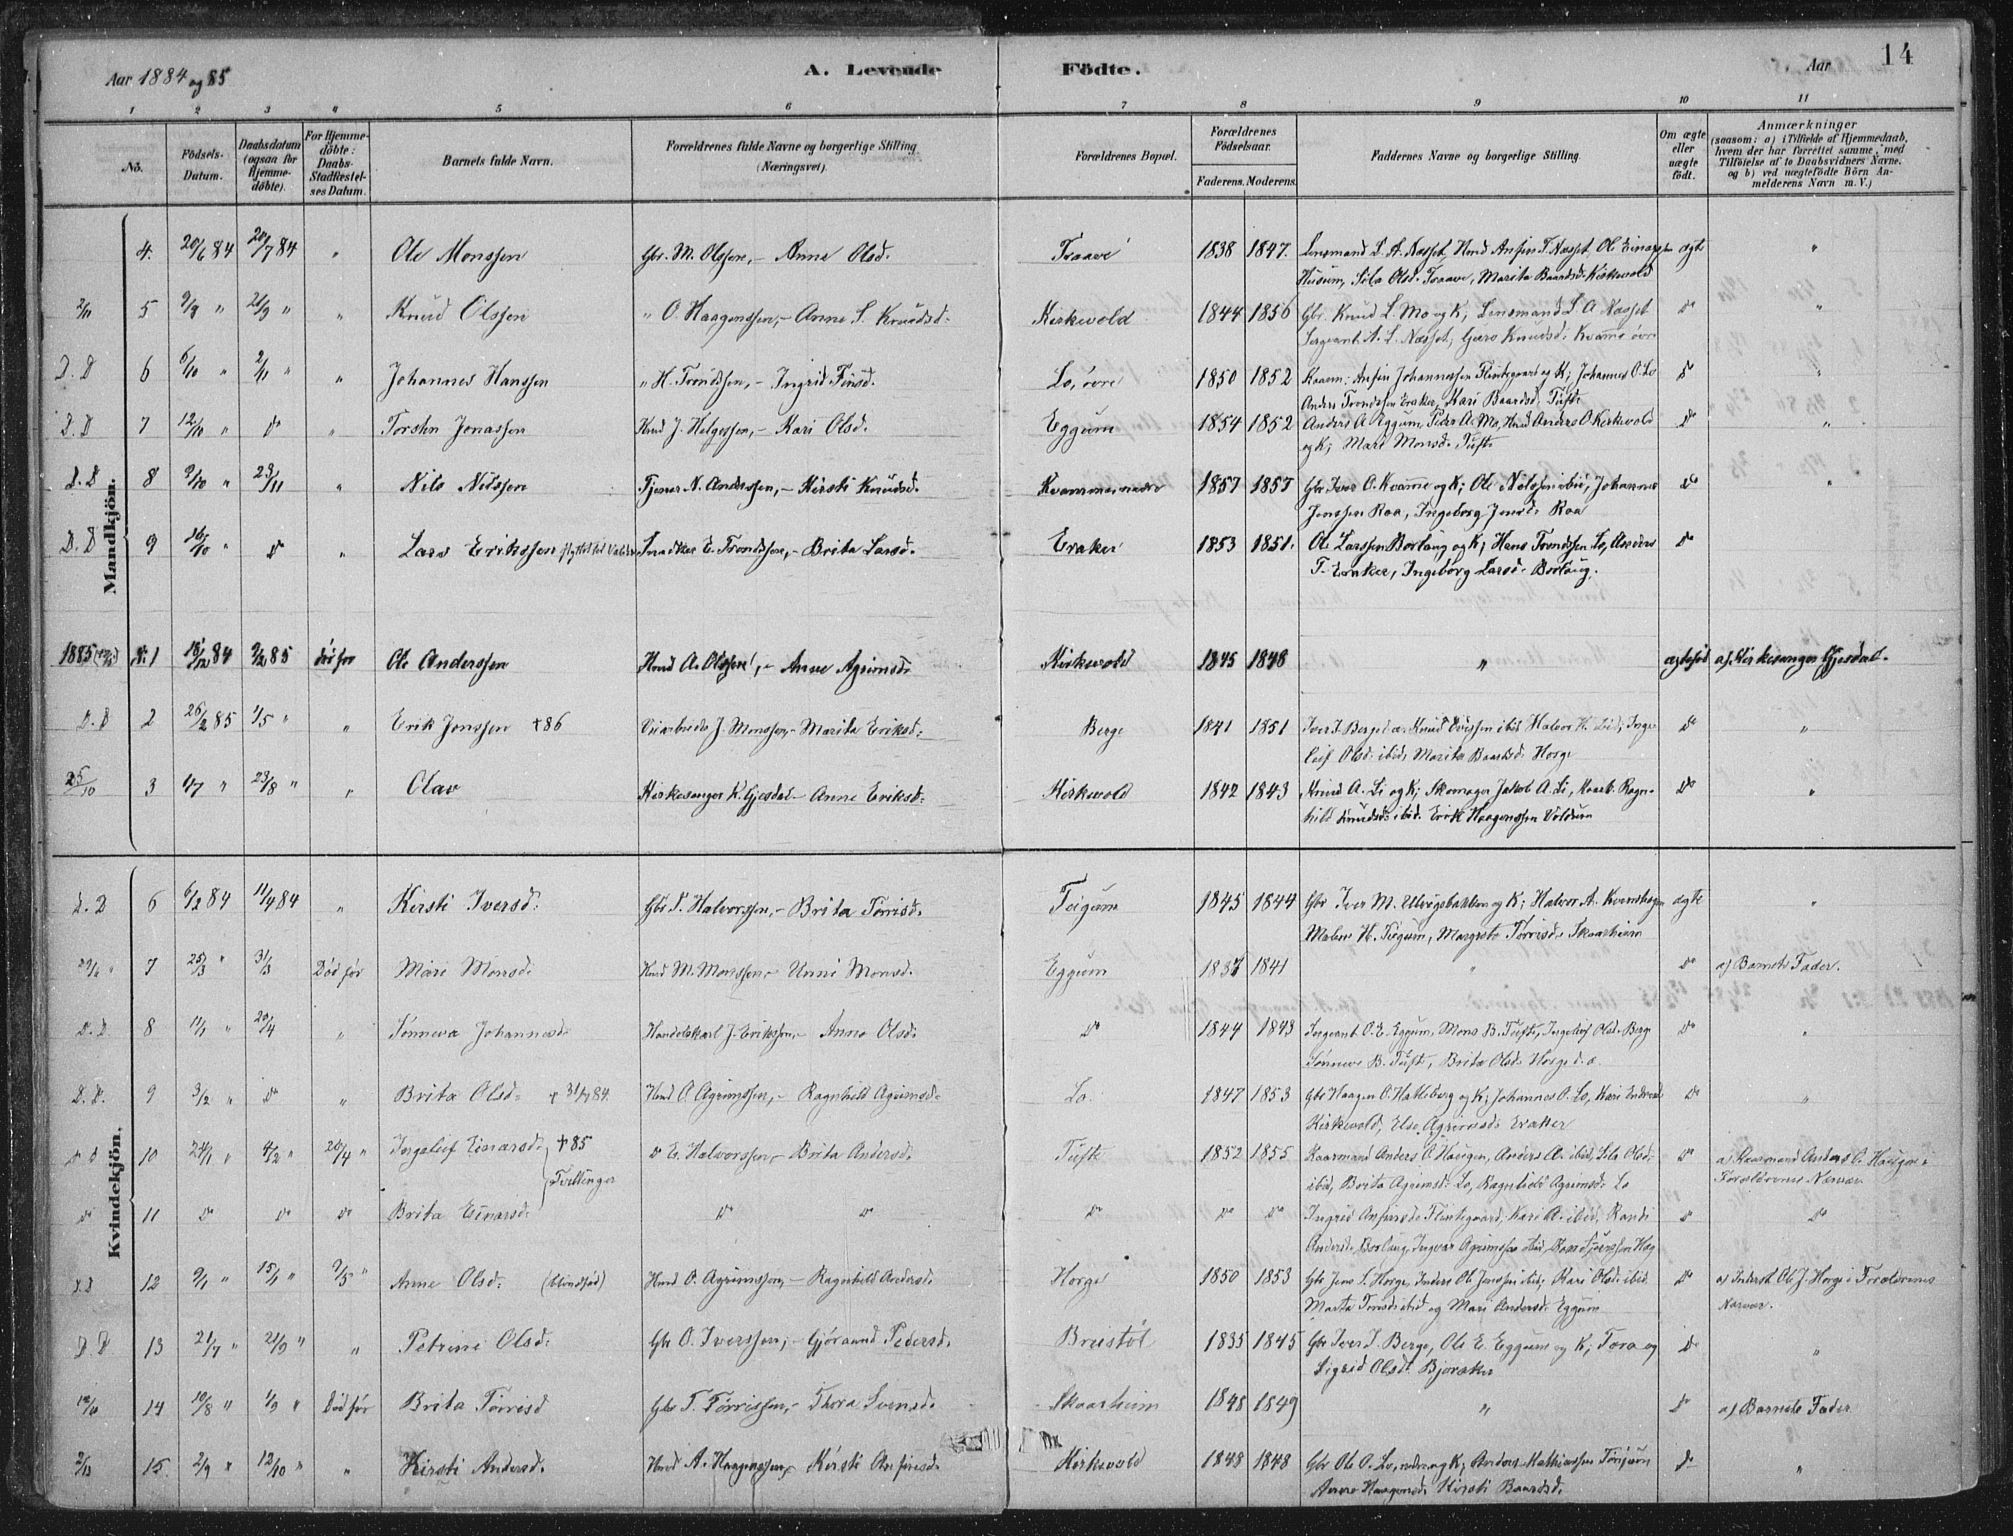 14
Aar 1884 og 85 A. Levende Fødte. Aar
1 2 3 4 5 6 7 8 9 10 11
No. Fødsels-Datum. Daabsdatum (ogsaa for Hjemmedøbte). For Hjemmedøbte: Daabs-Stadfæstelses Datum. Barnets fulde Navn. Forældrenes fulde Navne og borgerlige Stilling (Næringsvei). Forældrenes Bopæl. Forældrenes Fødselsaar. Faderens. Moderens. Faddernes Navne og borgerlige Stilling Om ægte eller uægte født. Anmærkninger (saasom: a) i Tilfælde af Hjemmedaab, hvem der har forrettet samme, med Tilføielse af to Daabsvidners Navne, og b) ved uægtefødte Børn Anmelderens Navn m. V.)
Mandkjøn.
4. 20/6 84 20/7 84 " Ole Monssen Gbr. M. Olssen, - Anne Olsd. Traave 1838 1847. Lensmand L. A. Næsset, Husmd Ansfin T. Næsset, Ole Einarssen ægte "
Husum, Sila Olsd. Traave, Marita Baardsd. Kirkevold
2/11 5 9/9 " 21/9 " " Knud Olssen " O. Haagenssen, - Anne S. Knudsd. Kirkevold 1844 1856 Gbr. Knud L. Mo og K; Lensmand L. A. Næsset do "
Sergeant A. L. Næsset, Guro Knudsd. Kvamme øvre
D. D 6 6/10 " 2/11 " " Johannes Hanssen " H. Trondssen, - Ingrid Finsd. Lo, øvre 1850 1852 Kaarm. Ansfin Johannessen Flintegaard og K; Johannes O. Lo do "
Anders Trondssen Eraker, Kari Baardsd. Tufte
D. D 7 12/10 " do " Torsten Jonassen Husmd J. Helgessen, - Kari Olsd. Eggum 1854 1852 Anders A. Eggum, Peder A. Mo, Husmd Anders O. Kirkevold do "
og K; Mari Monsd. Tufte
D. D 8 9/10 " 23/11 " Nils Nilssen Tjener N. Anderssen, - Kirsti Knudsd. Kvamme nedre 1857 1857 Gbr Iver O. Kvamme og K; Ole Nilssen ibid, Johannes do "
Jonssen Raa, Ingeborg Jonsd. Raa
D. D 9 16/10 " do " Lars Erikssen flyttet til Valders Snedker E. Trondssen, - Brita Larsd. Eraker 1853 1851. Ole Larssen Borlaug og K; Hans Trondssen Lo, Anders do
T. Eraker, Ingeborg Larsd. Borlaug.
1885 No. 1 18/12 84 9/2 85 død før Ole Anderssen Husmd A. Olssen, - Anne Agrimsd. Kirkevold 1845 1848 " ægtefød a) Kirkesanger Gjesdal.
D. D 2 26/2 85 1/5 " " Erik Jonssen +86 Veiarbeider J. Monssen, - Marita Eriksd. Berge 1841 1851 Iver I. Berge Knud Eirissen ibid Halvor H. Lid, Inge- do "
leif Olsd. ibid, Marita Baardsd. Horge
25/10 3 4/7 " 23/8 " " Olav Kirkesanger K. Gjesdal - Anne Eriksd. Kirkevold 1842 1843 Knud A. Li og K; Skomager Jakob A. Li, Ragn- do "
hild Knudsd. ibid. Erik Haagenssen Voldum
Kvindekjøn.
D. D 6 6/2 84 11/4 84 " Kirsti Iversd. Gbr I. Halvorssen, - Brita Torrisd. Teigum 1845 1844 Gbr Iver M. Ulvigsbakken og K; Halvor A. ægte "
Malene H. Teigum, Margreta Torrisd. Skaarheim
7 25/3 " 31/3 Død før Mari Monsd. Husmd M. Monssen, - Unni Monsd. Eggum 1837 1841 " do a) Barnets Fader.
D. D 8 11/1 " 20/4 " Sønneva Johannesd. Handelskarl J. Erikssen, - Anna Olsd. do 1844 1843 Sergeant O. E. Eggum, Mons B. Tufte, Ingeleif Olsd. Berge do "
Sønneve B. Tufte, Brita Olsd. Horge
D. D. 9 3/2 " do " Brita Olsd. + 31/7 84. Husmd O. Agrimssen, - Ragnhild Agrimsd. Lo 1847 1853 Gbr Haagen O. Hatleberg og K; Johannes O. Lo, Kari do "
Kirkevold, Else Agrimsd. Eraker
D D 10 24/1 " 4/2 " 20/4 " Ingeleif Einarsd. +85 do E. Halvorssen, - Brita Andersd. Tufte 1852 1855 Kaarmand Anders O. Haugen, Anders A. ibid, Sila Olsd. do a) Kaarmand Anders O. Haugen i
Tvillinger ibid, Brita Agrimsd. Lo, Ragnhild Agrimsd. Lo Forældrenes Nærvær
do 11 do do do Brita Einarsd. do do do do do Ingrid Ansfinsd. Flintegaard, Kari A. ibid, Randi do do
Andersd. Borlaug, Ingvar Agrimssen ibid,
D D 12 9/1 " 15/1 " 9/5 " Anne Olsd. (blindfød) Husmd O. Agrimssen, - Ragnhild Andersd. Horge 1850 1853 Gbr Jens L. Horge, Inderst Ole Jenssen ibid, Kari Olsd. ibid. do a) Inderst Ole J. Horge i Forældrenes
Marta Tomsd. ibid og Mari Andersd. Eggum Nærvær.
D. D. 13 21/7 " 21/9 " " Petrine Olsd. Gbr O. Iverssen, - Gjøraand Pedersd. Breistøl 1835 1845 Gbr Iver I. Berge, Ole E. Eggum og K; Tora og do "
Sigrid Olsd. Bjoraker
14 10/8 " 1/9 " Død før Brita Torrisd Gbr T. Torrissen, - Thora Svensd. Skaarheim 1848 1849 " do a) Barnets Fader
15. 2/9 " 12/10 " " Kirsti Andersd. Husmd A. Haagenssen, - Kirsti Ansfinsd. Kirkevold 1848 1848 Gbr Ole O. Lo, nedre og K; Anders Mathiassen do "
Anne Haagensd. Kirsti Baardsd.